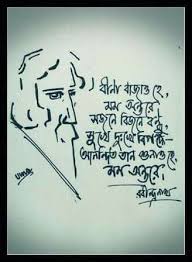 বীনা বাজাও হে,
মম অন্তরে
সজনে বিজনে বন্ধু
সুখে দুঃখে বিপদে
আনন্দিত তান শুনাও হে,
মম অন্তরে।
রবীন্দ্রনাথ